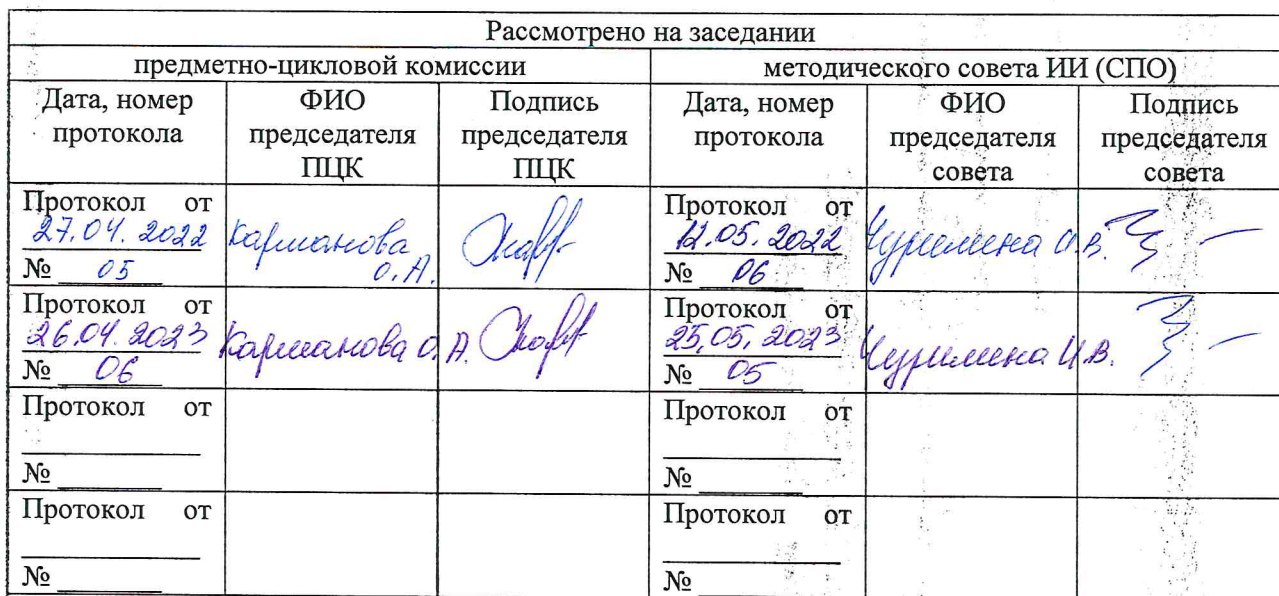 Рассмотрено на заседании
предметно-цикловой комиссии
методического совета ИИ (СПО)
Дата, номер
протокола
ФИО
председателя
ПЦК
Подпись
председателя
ПЦК
Дата, номер
протокола
ФИО
председателя
совета
Подпись
председателя
совета
Протокол от
27.04.2022
№ 05
Карманова
О.А.
Протокол от
12.05.2022
№ 06
Чурилина И.В.
Протокол от
26.04.2023
№ 06
Карманова О.А.
Протокол от
25.05.2023
№ 05
Чурилина И.В.
Протокол от
№
Протокол от
№
Протокол от
№
Протокол от
№